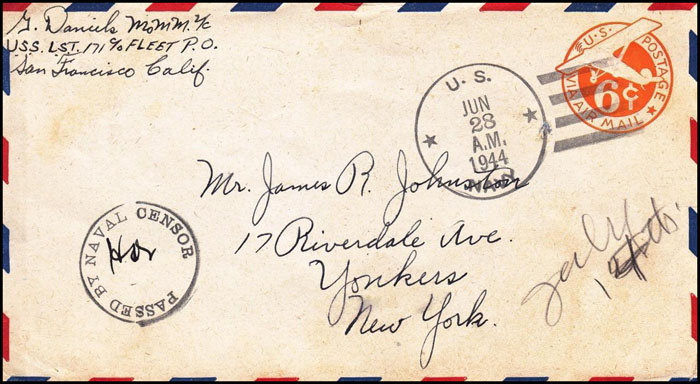 G. Daniels MoMM 2/c
U.S.S. L.S.T. 171 % FLEET P.O.
San Francisco Calif.
U.S. POSTAGE
6¢
VIA AIR MAIL
U. S.
JUN
28
A.M.
1944
NAVY
Mr. James R. Johnston
17 Riverdale Ave.
Yonkers
New York.
PASSED BY NAVAL CENSOR